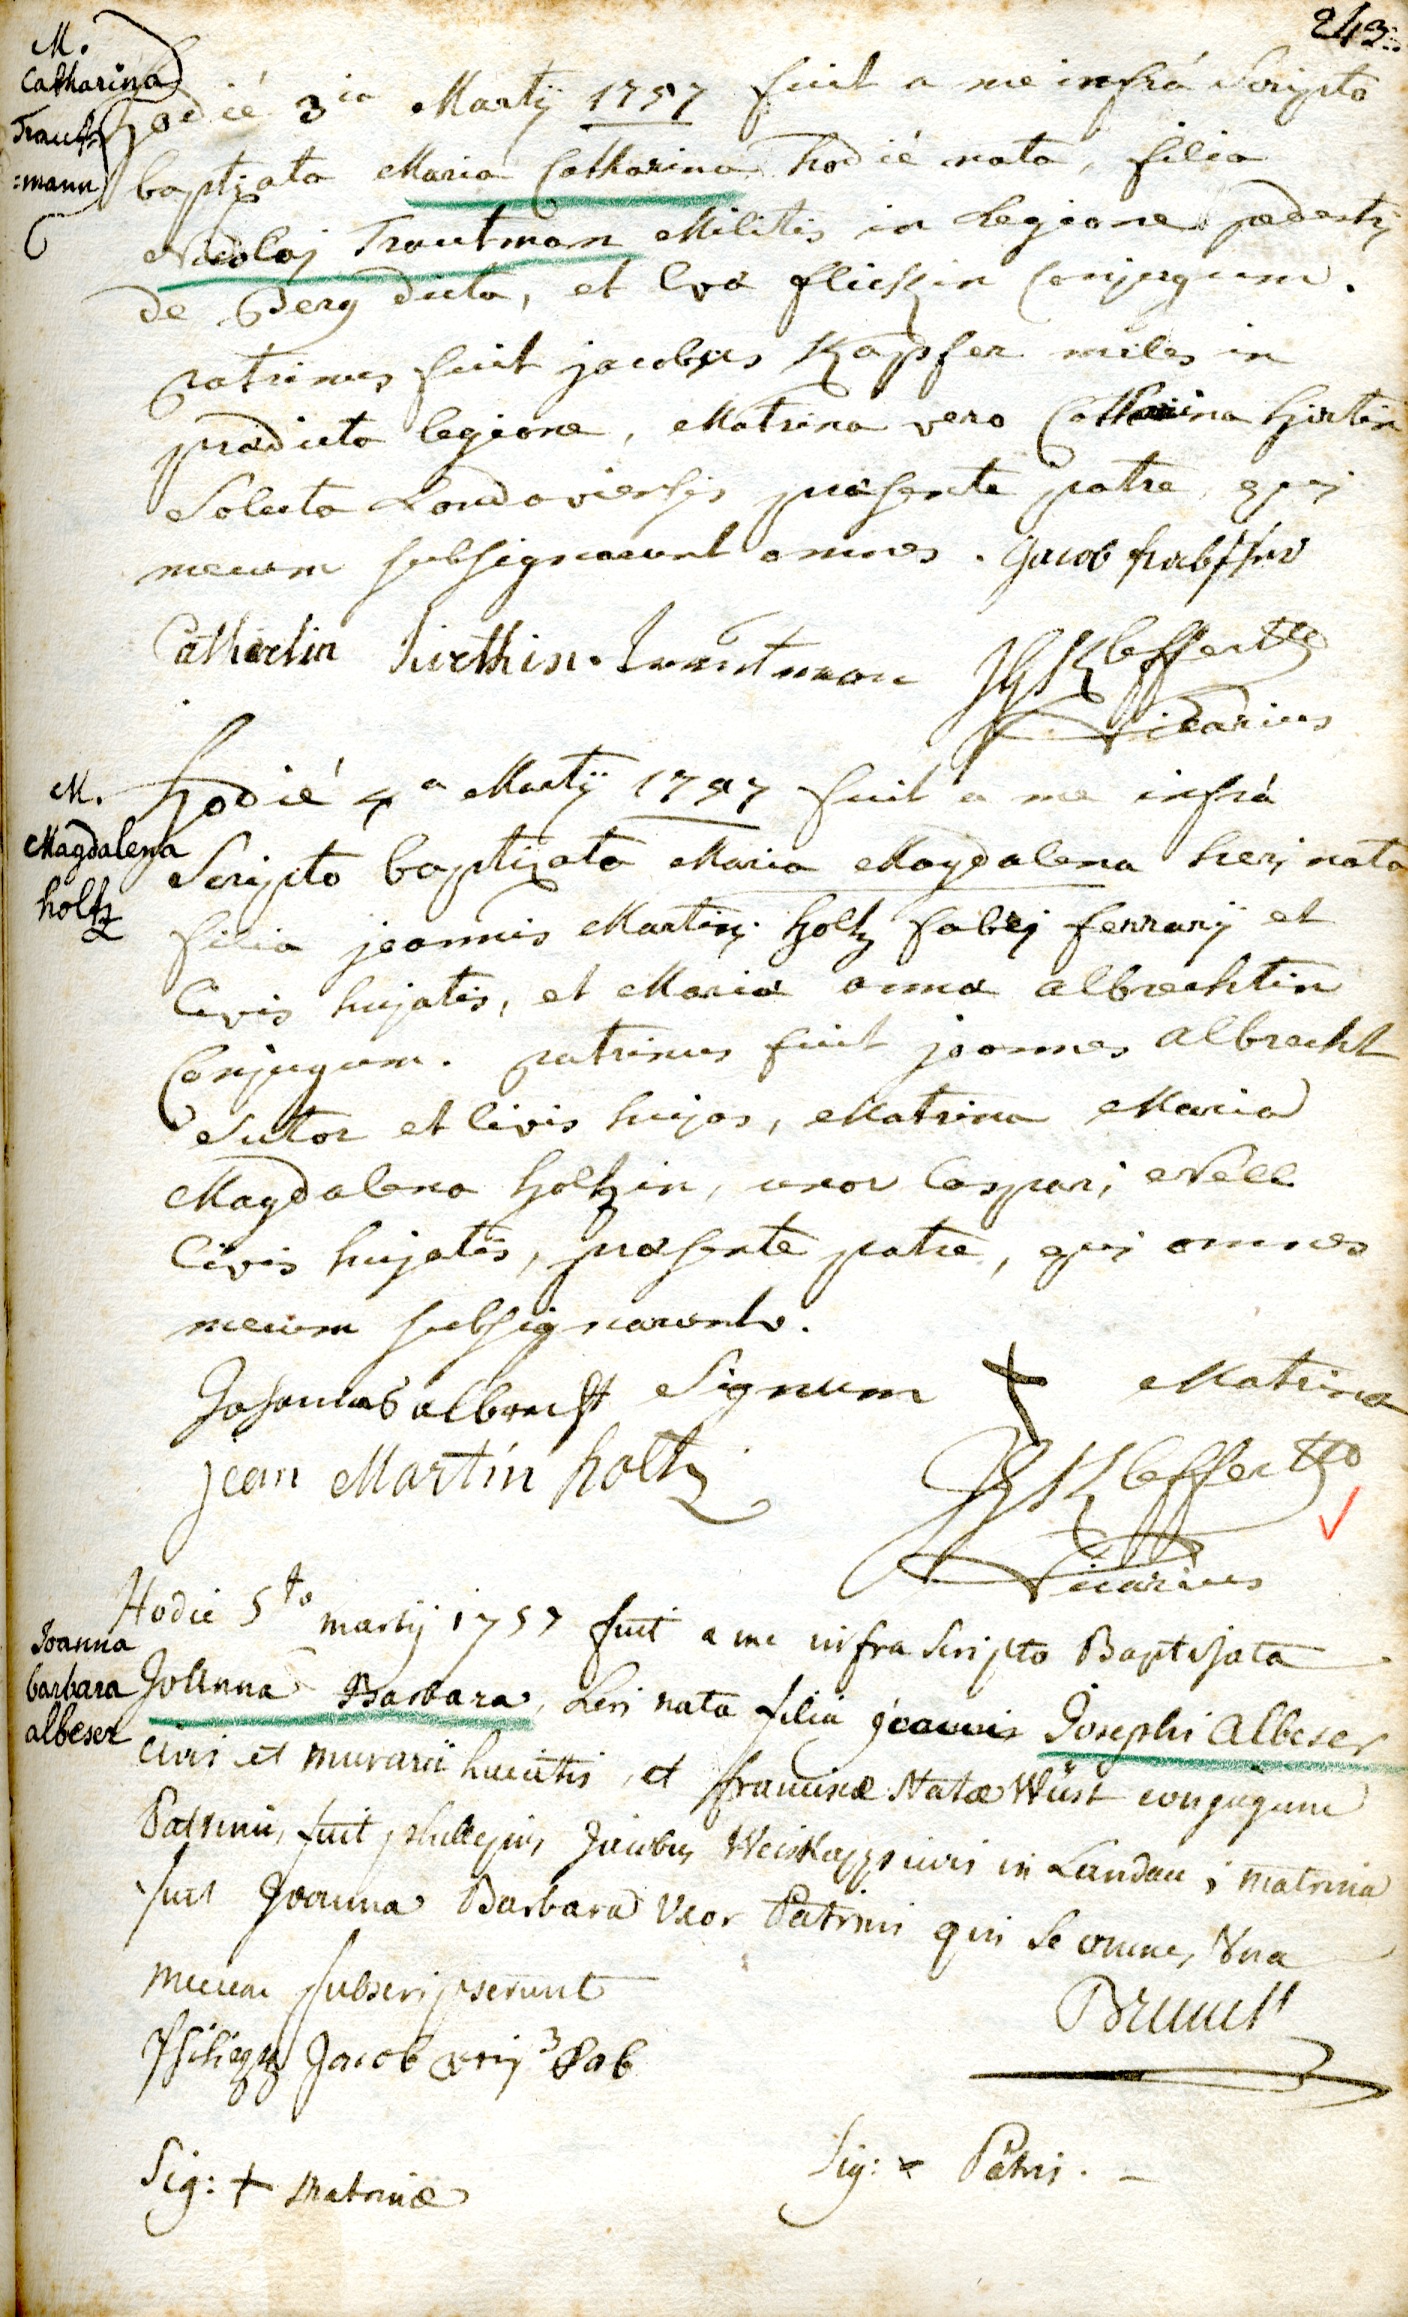 243.
M.
Catharina
Traut
=mann
hodié 3ia Martÿ 1757 fuit a me infrá Scripto
baptizata Maria Catharina hodié nata, filia
Nicolaj Trautman Militis in legione pedestrj
de Berg dicta, et Eva flickin Conjugum.
patrinus fuit jacobus Kapfer miles in
prædicta legione, Matrina vero Catharina hirtin
Soluta Landaviensis præsente patre qui
mecum subsignarunt omnes. Jacob
Catharin hirthin. Trautman JGKleffert
Vicarius
M.
Magdalena
holtz
hodié 4a Martÿ 1757 fuit a me infrá
Scripto baptizata Maria Magdalena herj nata
filia joannis Martinj holtz fabrj ferrarÿ et
Civis hujatis, et Mariæ annæ albrechtin
Conjugum. patrinus fuit joannes albrecht
Sutor et Civis hujas, Matrina Maria
Magdalena holtzin, uxor Casparj Nell
Civis hujatis, præsente patre, qui omnes
mecum subsignarunt.
Johannes albrecht Signum + Matrinæ
jean Martin holtz JGKleffert
Vicarius
Joanna
barbara
albeser
Hodie 5to martij 1757 fuit a me infra Scripto Baptisata
Johanna Barbara, heri nata filia joannis Josephi Albeser
civis et murarii huiatis, et francinæ Natæ Wüst conjugum
Patrinus fuit philippus Jacobus Weiskopp civis in Landau; matrina
fuit Joanna Barbara Uxor Patrini qui se omnes Una
mecum subscripserunt
Brunck
Philipp Jacob
Sig: + Matrinæ Sig: x Patris. –